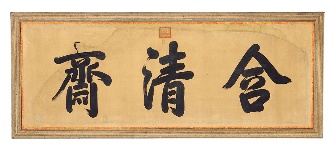 含清齋